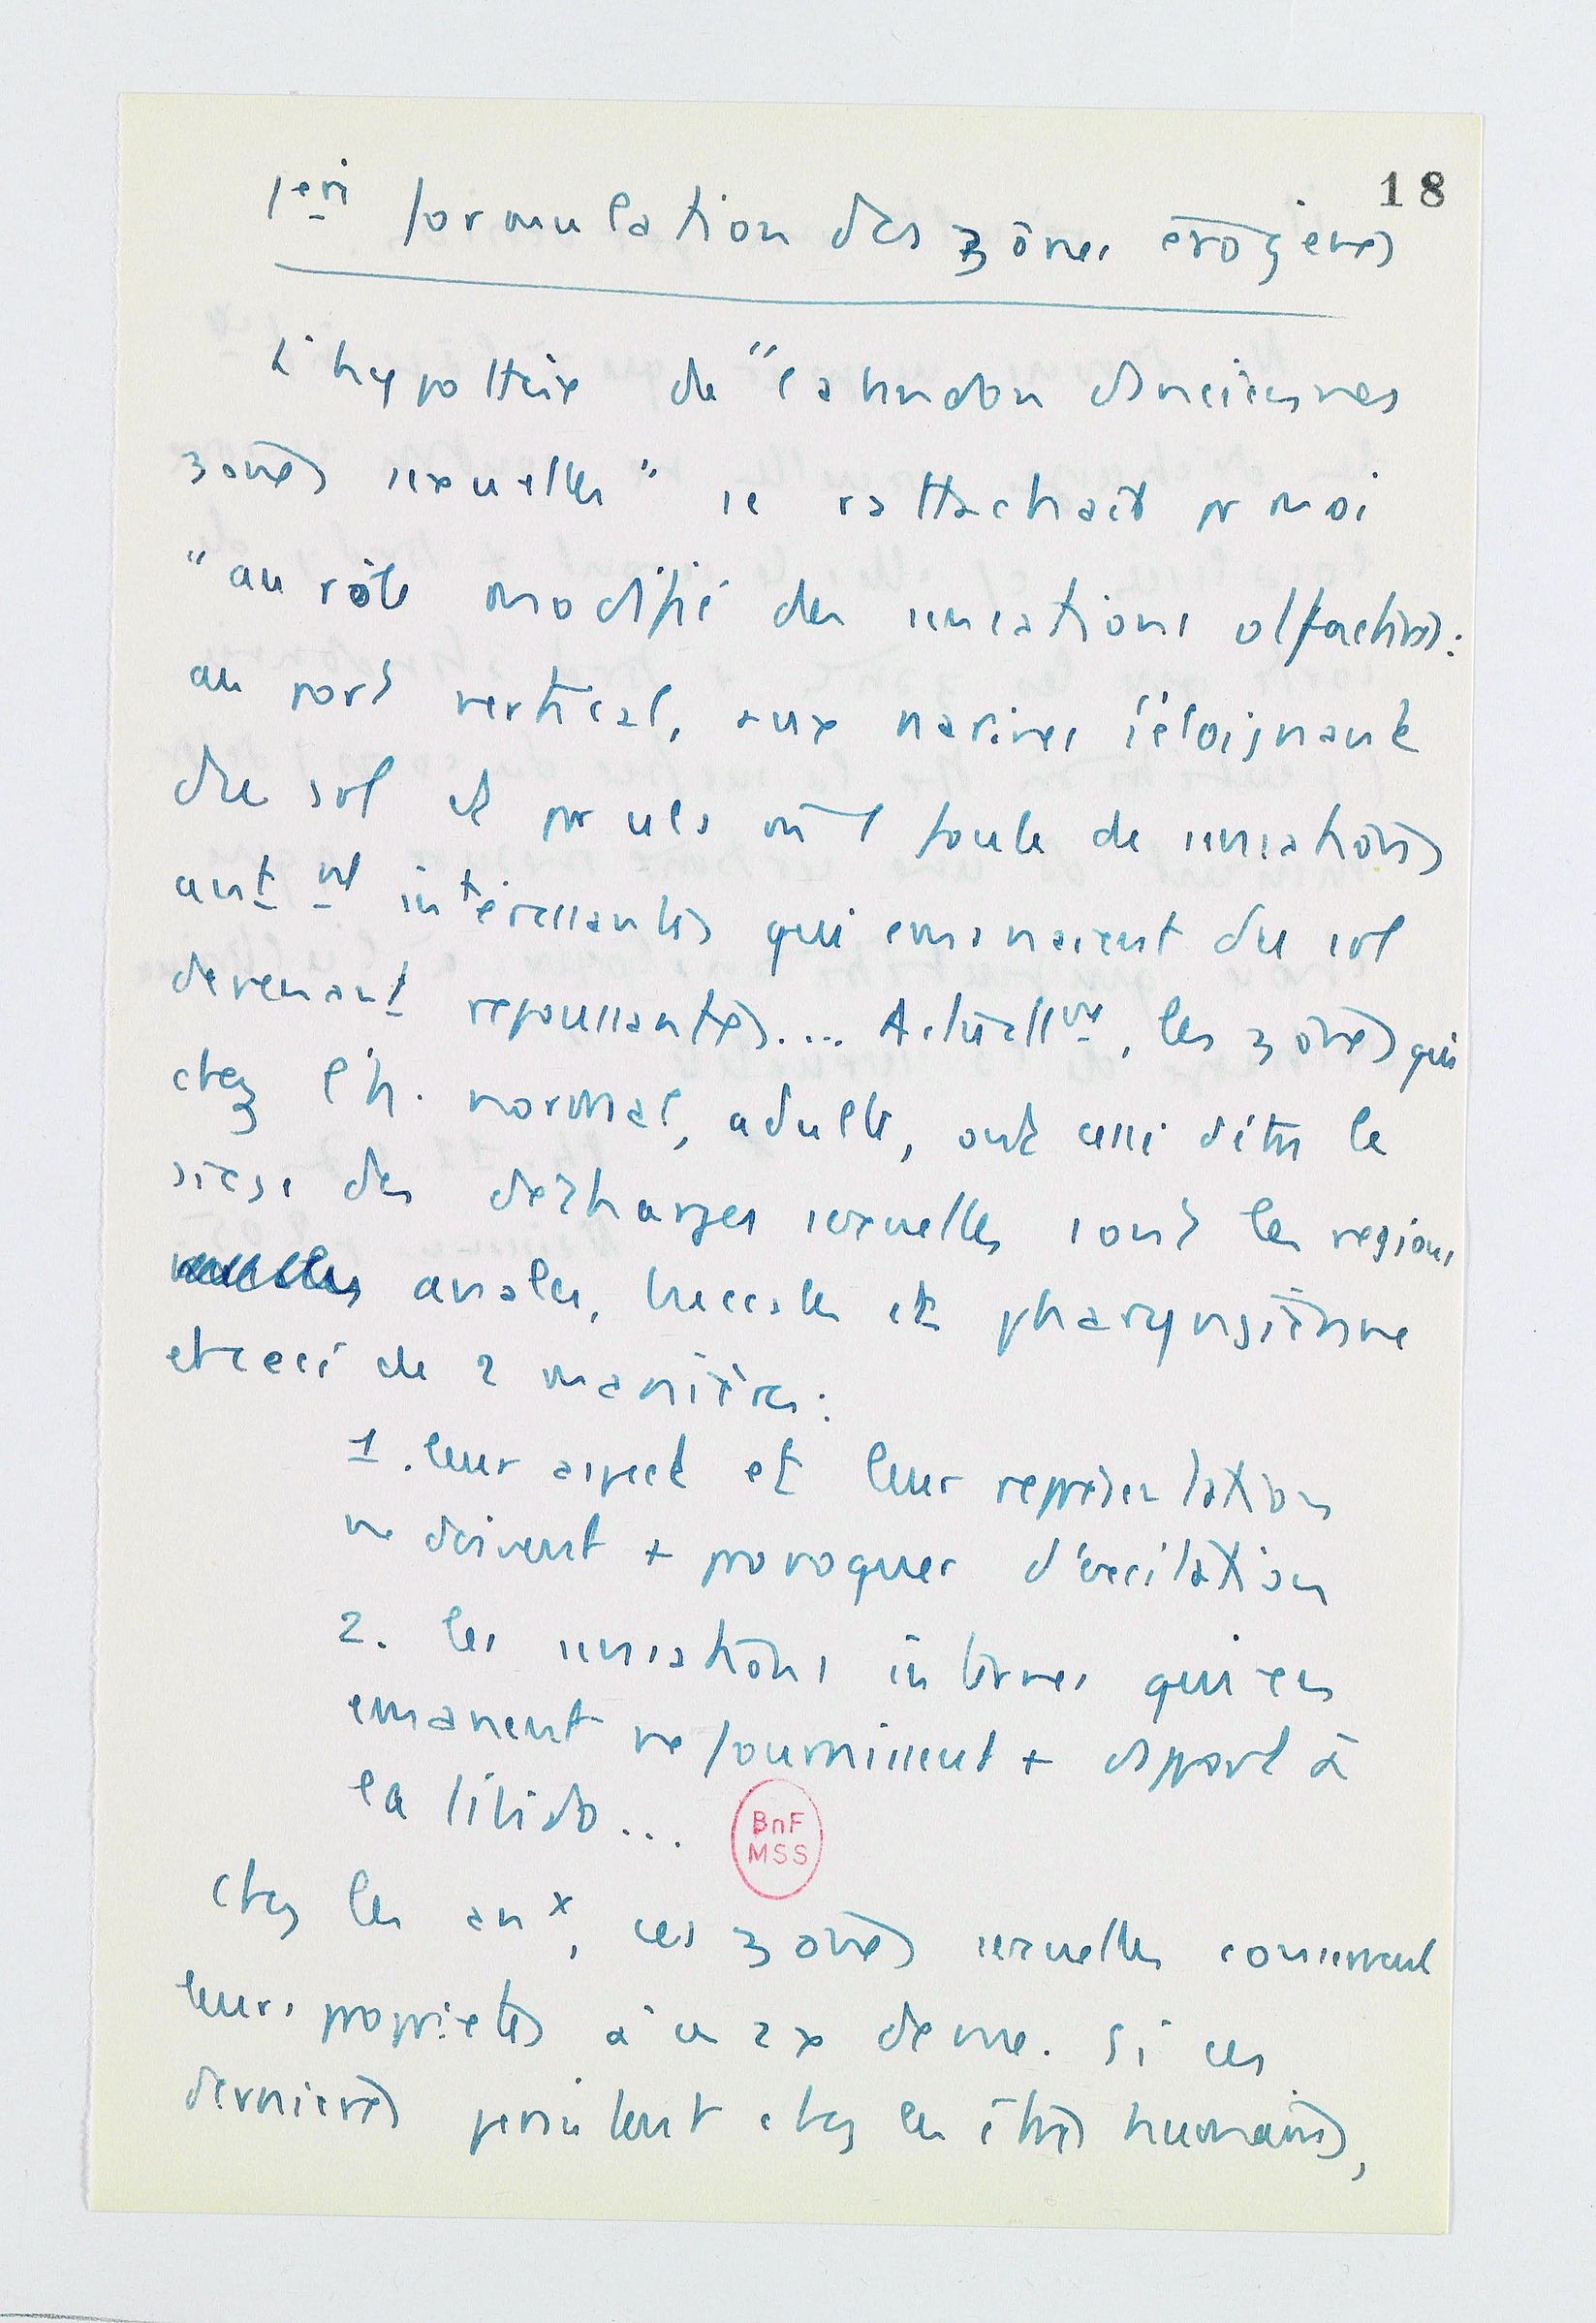 18
1ere formulation des zônes érogènes
L'hypothèse de "l'abandon d'anciennes
zones sexuelles" se rattachait pr moi
"au rôle modifié des sensations olfactives:
au port vertical, aux narines s'éloignant
du sol et pr cela une foule de sensations
antt intéressantes qui émanaient du sol
devenant repoussantes.... Actuellmt, les zônes qui
chez l'h. normal, adulte, ont cessé d'être le
siège des décharges sexuelles sont les régions
anales, buccales et pharyngienne
et ceci de 2 manières:
1. leur aspect et leur représentation
ne doivent + provoquer d'excitation
2. les sensations internes qui en
émanent ne fournissent + d'apport à
la libido...
BnF
MSS
Chez les anx, ces zônes sexuelles conservent
leurs propriétés à ce 2x demie. Si ces
dernières persistent chez les êtres humains,